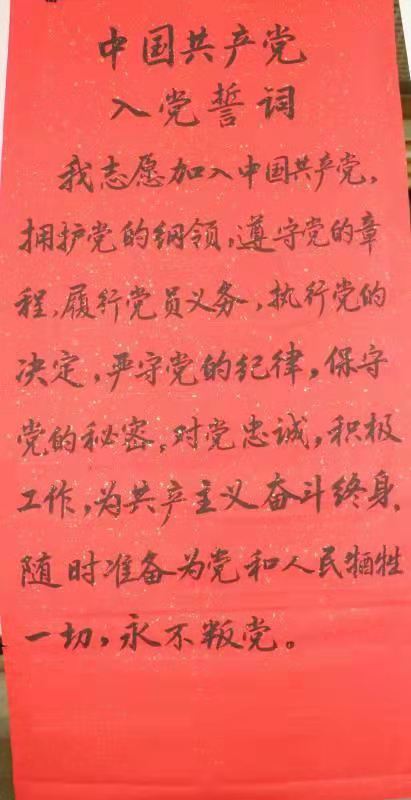 中国共产党
入党誓词
我志愿加入中国共产党,
拥护党的纲领,遵守党的章
程,履行党员义务,执行党的
决定,严守党的纪律,保守
党的秘密,对党忠诚,积极
工作,为共产主义奋斗终身,
随时准备为党和人民牺牲
一切,永不叛党。